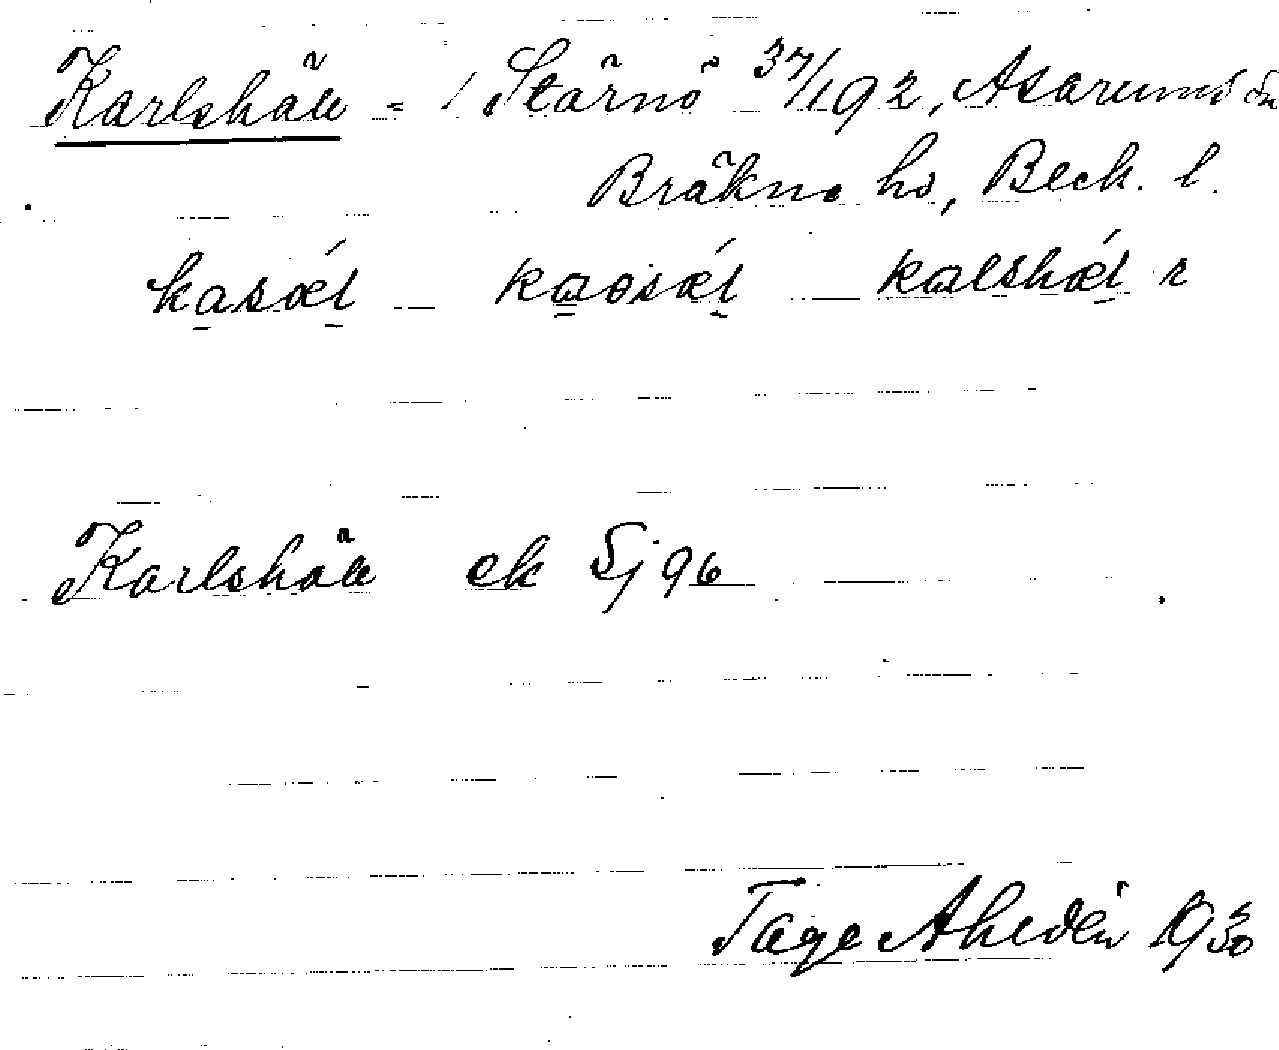 Karlshäll = / Stärnö 37/192, Asarums sn
Bräkne hd, Bleck. l.
kasæl — kaosæl — kalshæl r
Karlshäll ek Sj 96
Tage Ahldén 1930